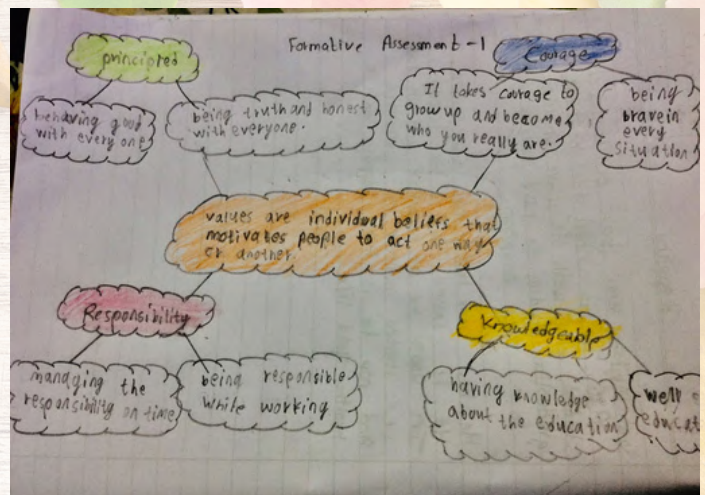 Formative Assessment-1
principled
behaving good
with every one
being truth and honest
with everyone.
Courage
It takes courage to
grow up and become
who you really are.
being
brave in
every
situation
values are individual beliefs that
motivates people to act one way
or another.
Responsibility
managing the
responsibility on time
being responsible
while working
Knowledgeable
having knowledge
about the education
well
educat